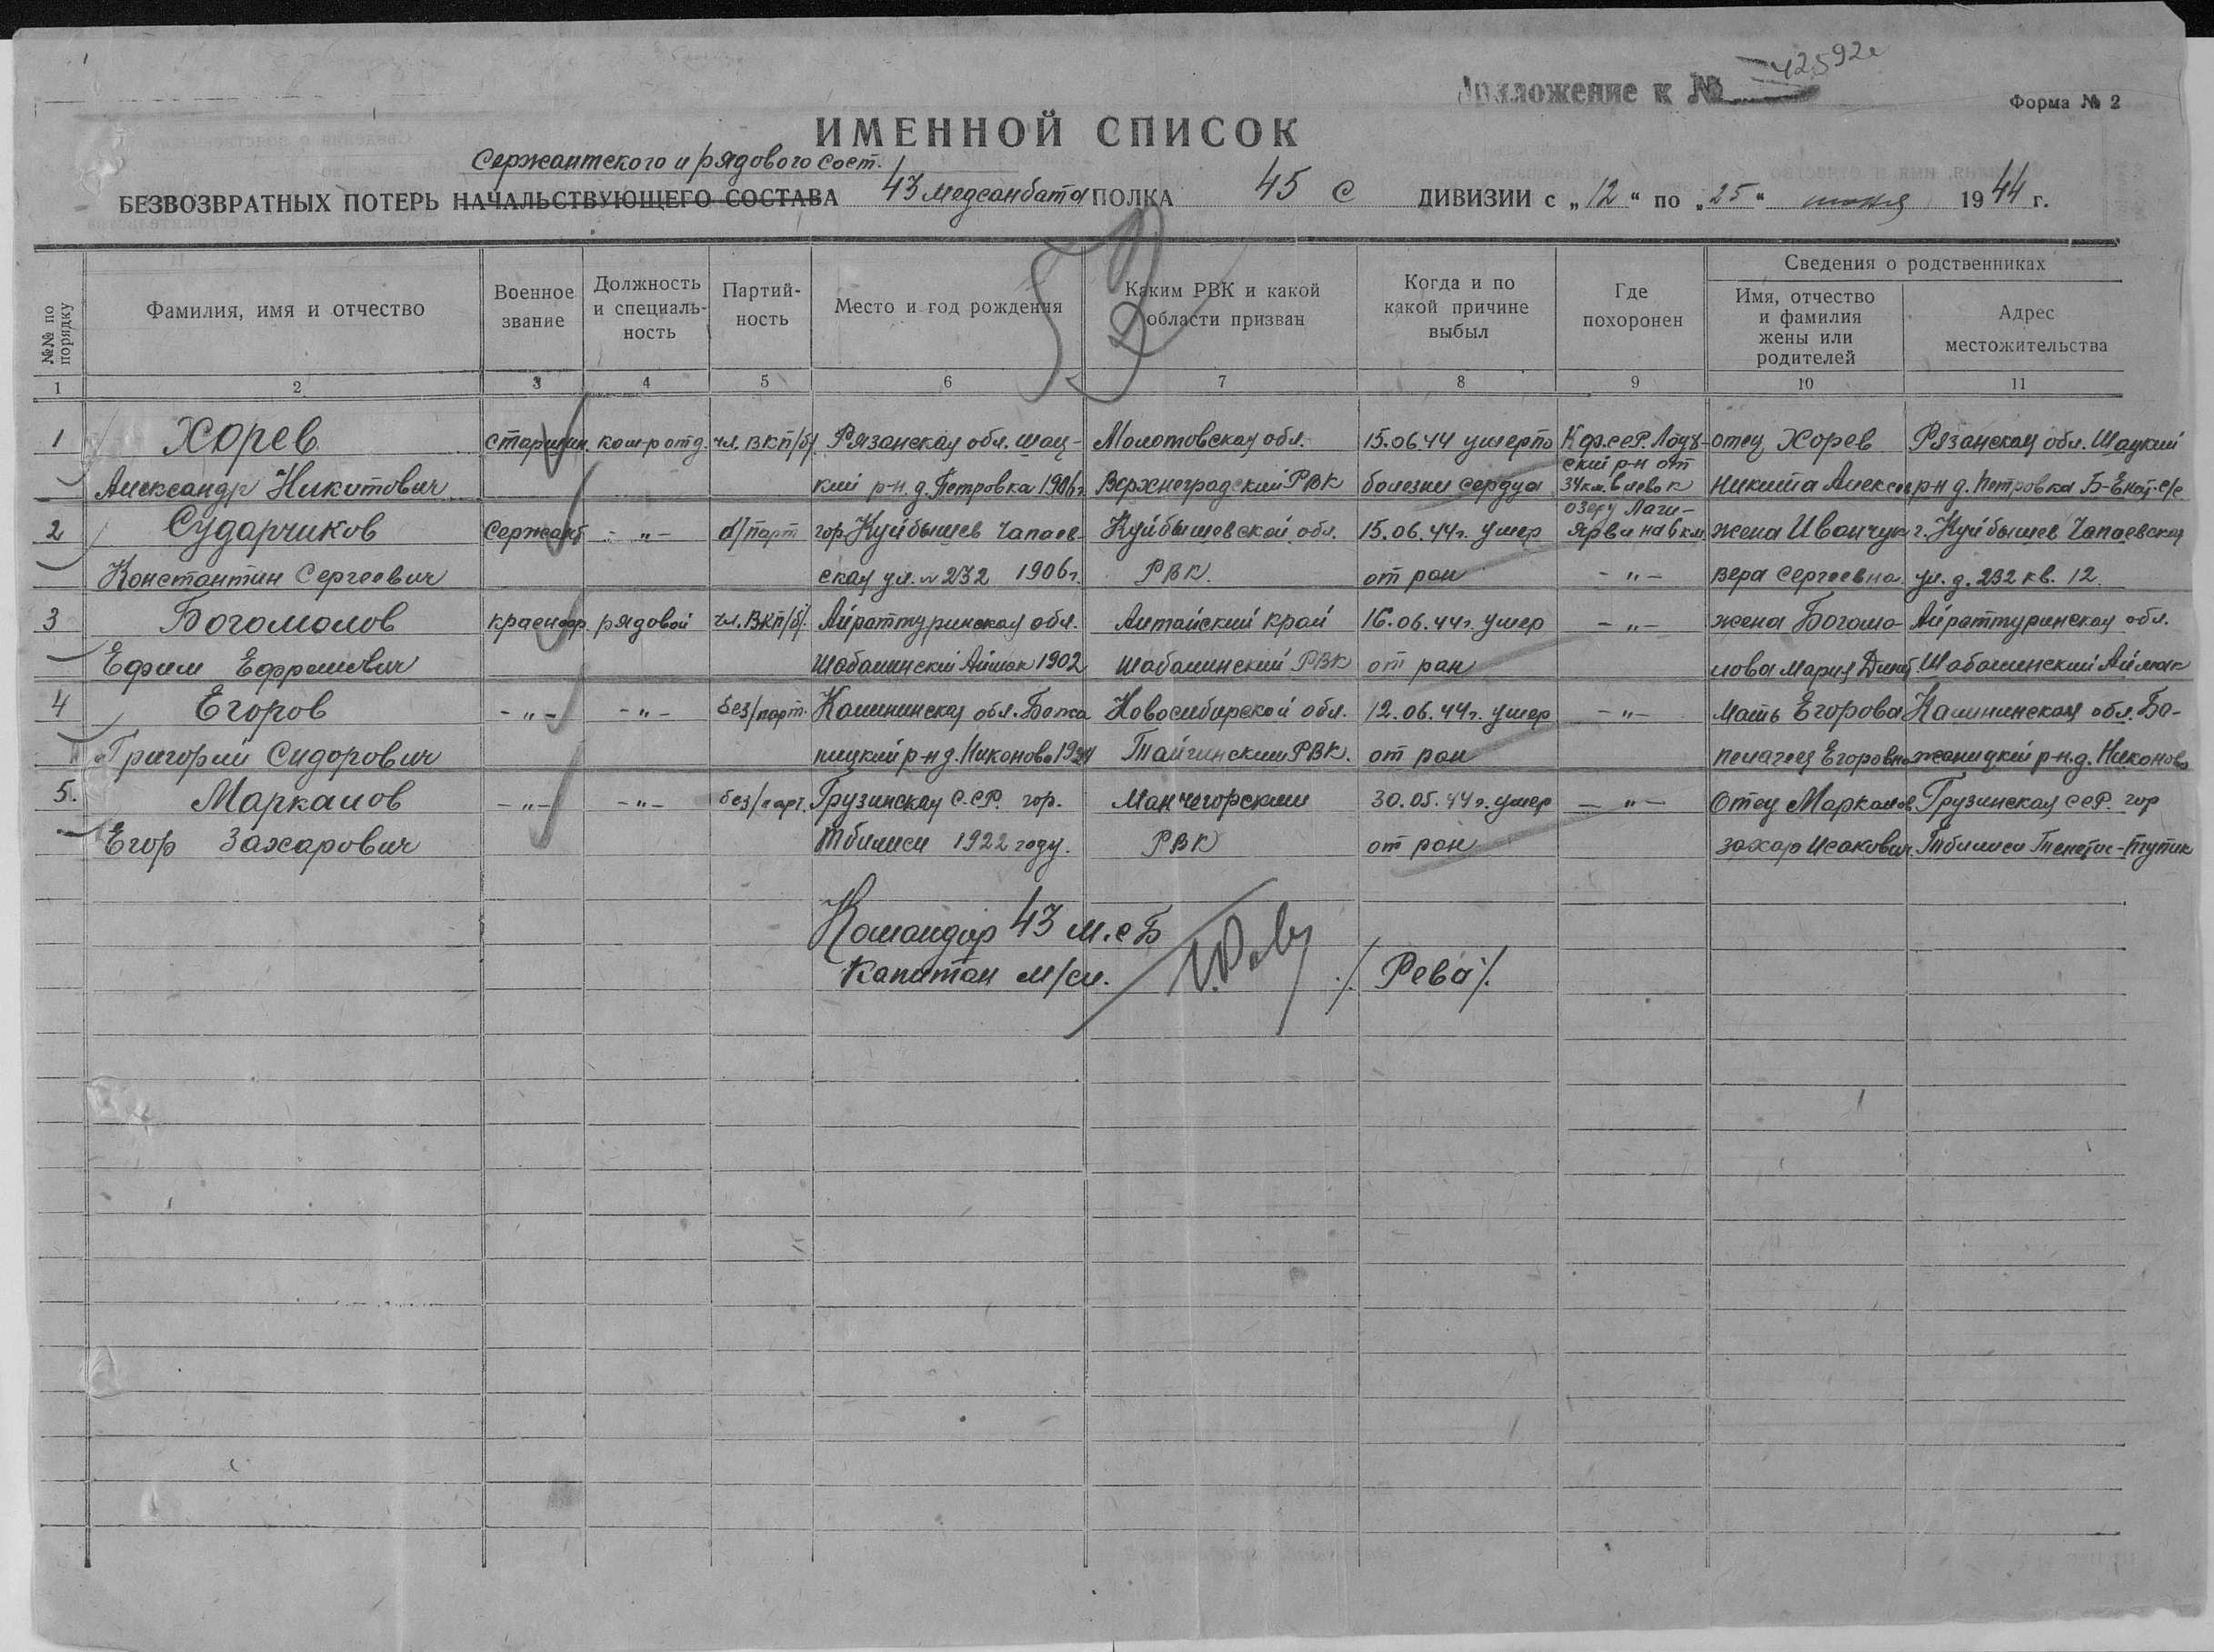 Приложение к № 42592с
Форма № 2
ИМЕННОЙ СПИСОК
Сержантского и рядового сост.
БЕЗВОЗВРАТНЫХ ПОТЕРЬ НАЧАЛЬСТВУЮЩЕГО СОСТАВА 43 медсанбата ПОЛКА 45 С ДИВИЗИИ с „12“ по „25“ июня 1944 г.
№№ по порядку
Фамилия, имя и отчество
Военное звание
Должность и специальность
Партийность
Место и год рождения
Каким РВК и какой области призван
Когда и по какой причине выбыл
Где похоронен
Сведения о родственниках
Имя, отчество и фамилия жены или родителей
Адрес местожительства
1 2 3 4 5 6 7 8 9 10 11
1 Хорев старшин. ком-р отд. чл. ВКП/б/ Рязанская обл. Шац- Молотовская обл. 15.06.44 умер по К.ф.ССР. Лоух- отец Хорев Рязанская обл. Шацкий
ский р-н от
Александр Никитович кий р-н. д. Петровка 1906г. РВК болезни сердца 34 км. влево к Никита Алексев р-н д. Петровка Б-Екат. с/с
озеру Лаги-
2 Сударчиков Сержант - " - б/парт гор. Куйбышев Чапаев- Куйбышевской обл. 15.06.44г. умер Ярви на 6 км. жена Иванчук г. Куйбышев Чапаевская
Константин Сергеевич ская ул. № 232 1906г. РВК. от ран - " - Вера Сергеевна ул. д. 232 кв. 12.
3 Богомолов красноар. рядовой чл. ВКП/б/. обл. Алтайский край 16.06.44г. умер - " - жена Богомо- обл.
Ефим Ефремович Шабалинский Аймак 1902 Шабалинский РВК от ран лова Мария Шабалинский Аймак
4 Егоров - " - - " - без/парт. Калининская обл. Новосибирской обл. 12.06.44г. умер - " - Мать Егорова Калининская обл. Ба-
Григорий Сидорович ницкий р-н д. Никоново Тайгинский РВК. от ран Пелагея Егоровна жаницкий р-н. д. Никоново
5. Маркалов - " - - " - без/парт. Грузинская С.СР. гор. Манчегорский 30.05.44г. умер - " - Отец Маркалов Грузинская ССР. гор
Егор Захарович Тбилиси 1922 году. РВК от ран Захар Исакович Тбилиси тупик
Командир 43 м.с.Б
Капитан м/сл. /Рева/.